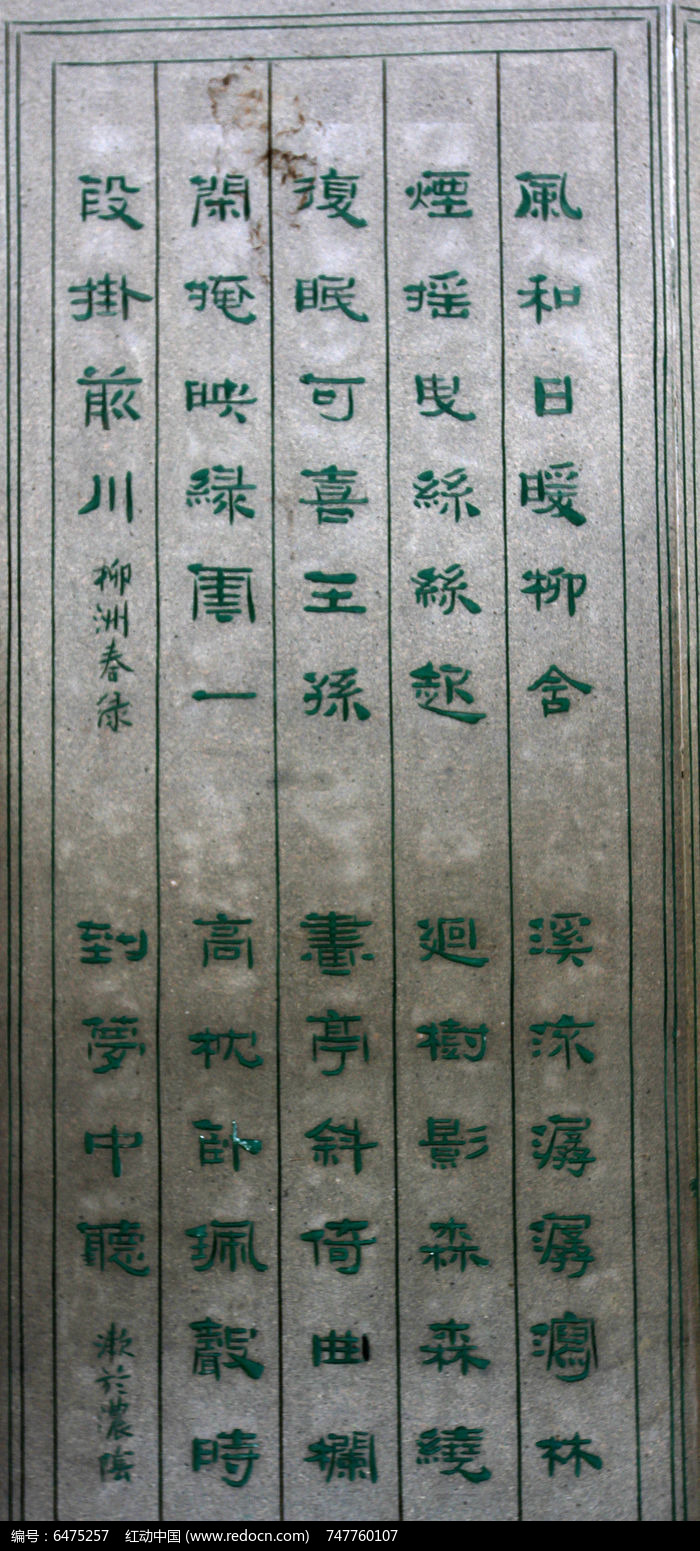 風和日暖柳含
煙摇曳絲絲起
復眠可喜王孫
閑掩映緑雲一
段掛前川
柳洲春緑
溪流潺潺瀉林
迴樹影森森繞
畫亭斜倚曲欄
高枕卧珮聲時
到夢中聽
漱於濃陰
编号：6475257 红动中国 (www.redocn.com) 747760107